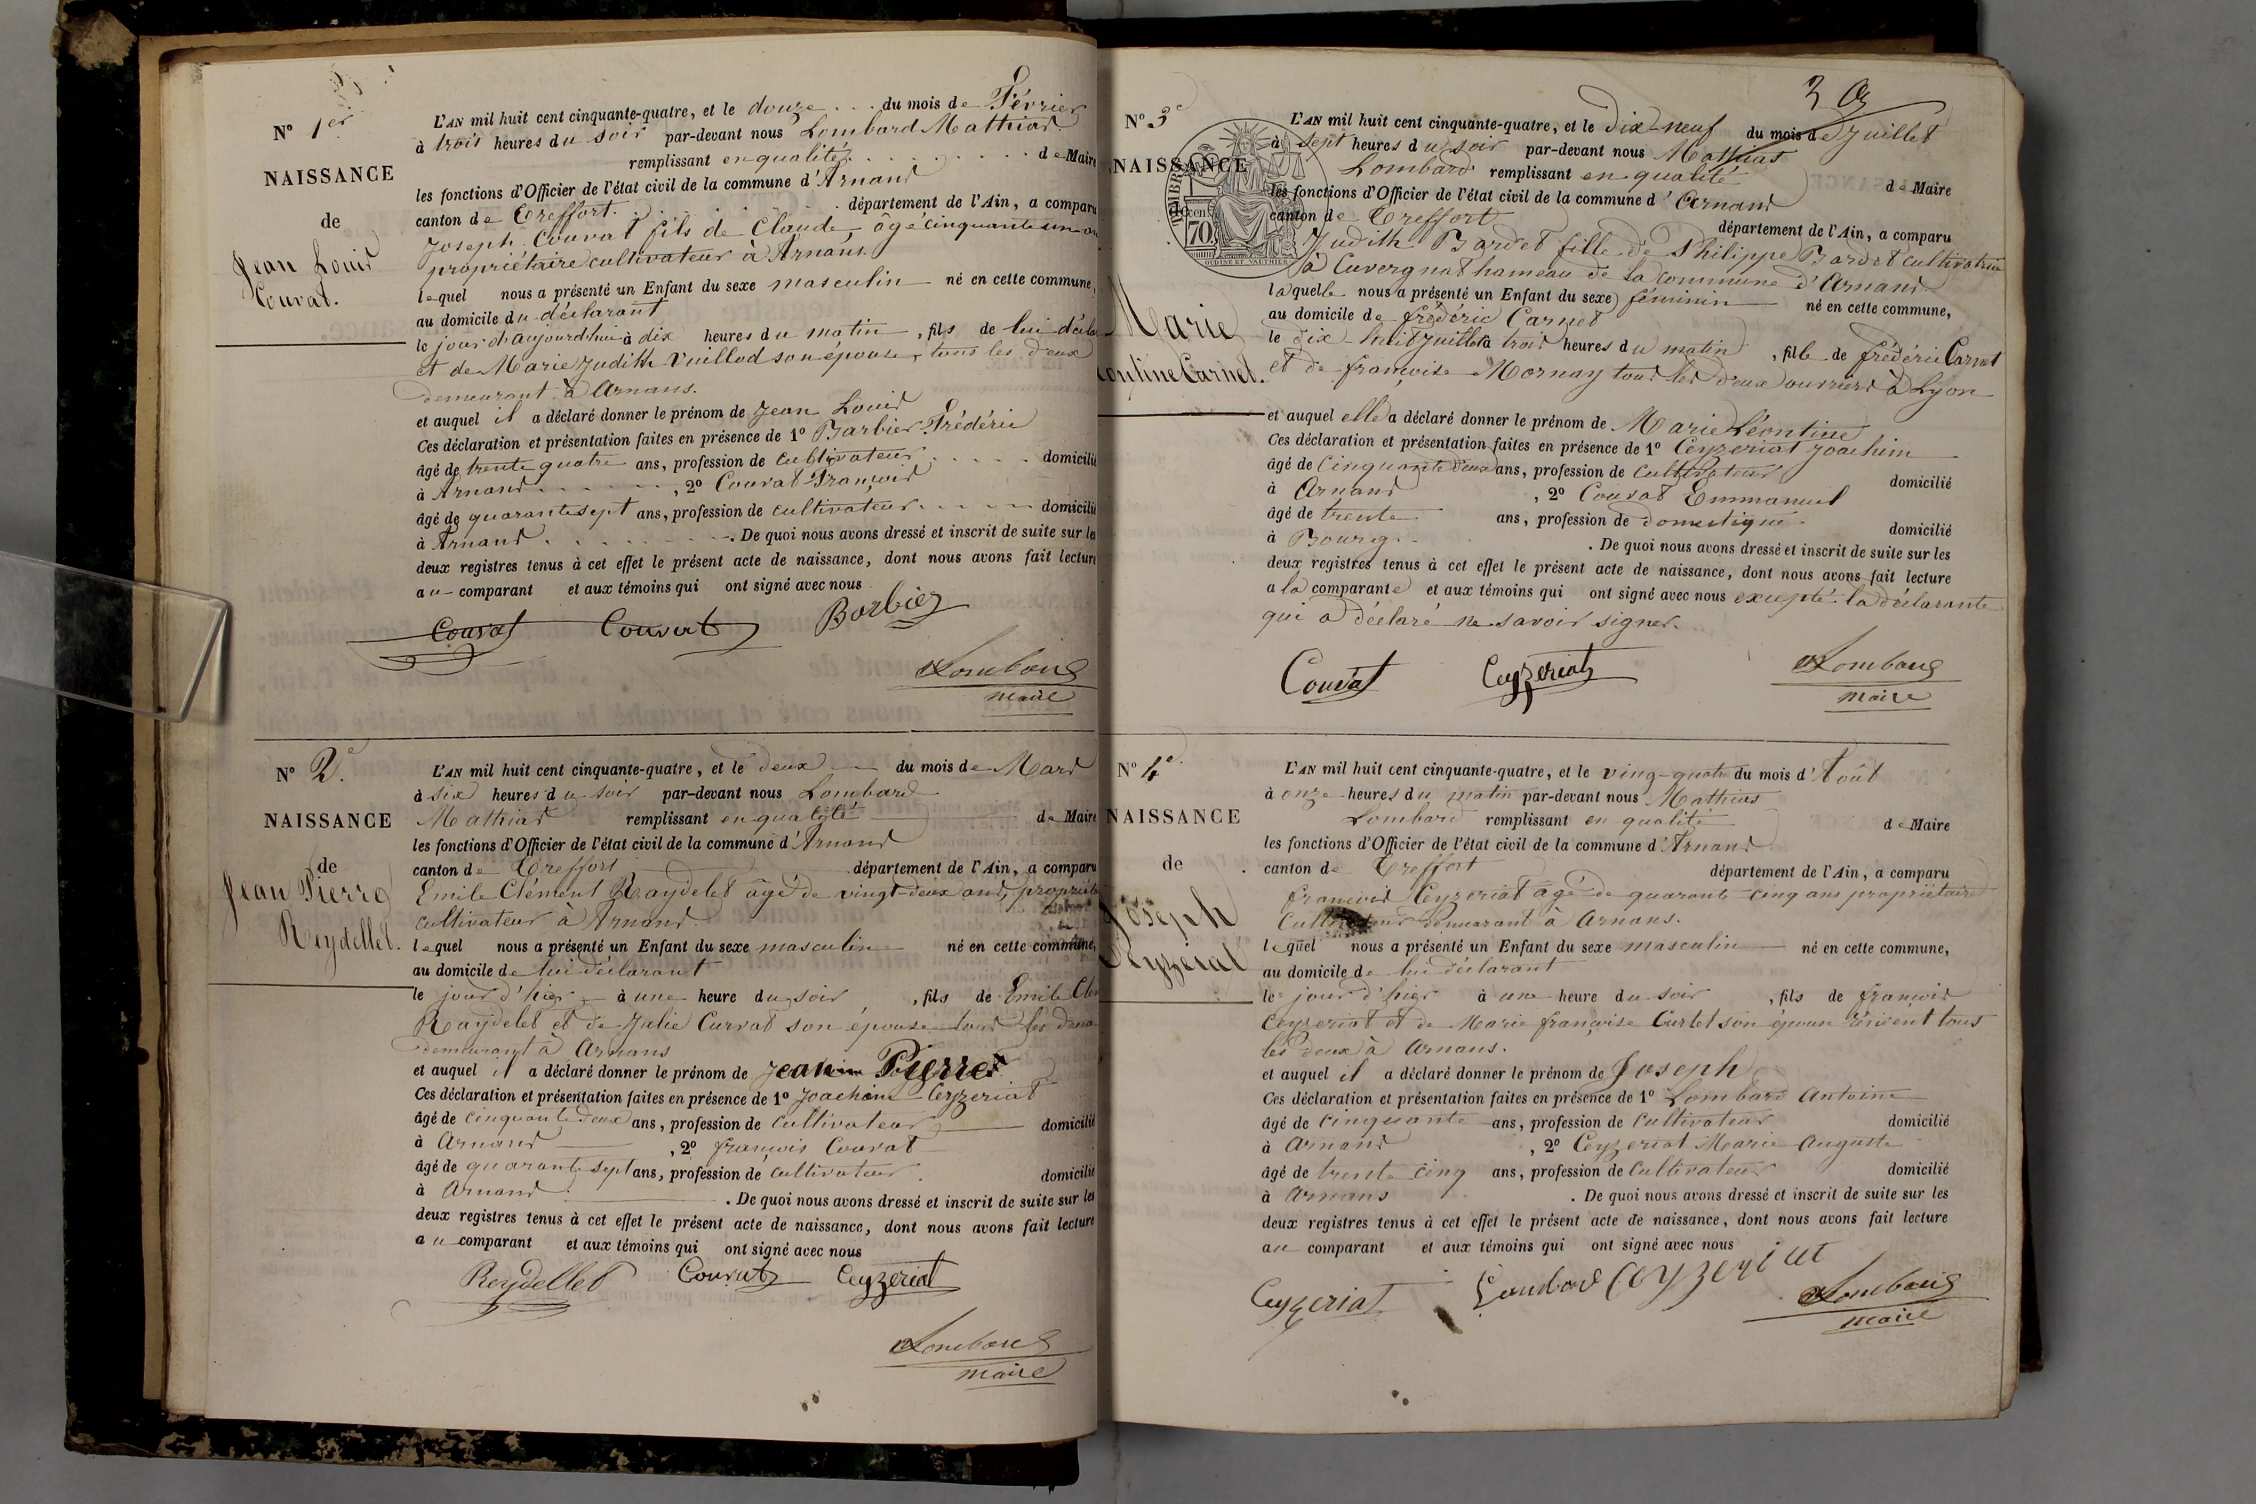 N° 1er
NAISSANCE
de
Jean Louis
Couvat.
L'AN mil huit cent cinquante-quatre, et le douze du mois de Février
à trois heures du soir par-devant nous Lombard Mathias
remplissant en qualité de Maire
les fonctions d'Officier de l'état civil de la commune d'Arnans
canton de Treffort département de l'Ain, a comparu
Joseph Couvat fils de Claude, âgé cinquante un ans
propriétaire cultivateur à Arnans.
lequel nous a présenté un Enfant du sexe masculin né en cette commune,
au domicile du déclarant
le jour d'aujourd'hui à dix heures du matin, fils de lui décla
et de Marie Judith Vuillod son épouse, tous les deux
demeurant à Arnans.
et auquel il a déclaré donner le prénom de Jean Louis
Ces déclaration et présentation faites en présence de 1° Barbier Frédéric
âgé de trente quatre ans, profession de cultivateur domicilié
à Arnans, 2° Couvat François
âgé de quarante sept ans, profession de cultivateur domicilié
à Arnans. De quoi nous avons dressé et inscrit de suite sur les
deux registres tenus à cet effet le présent acte de naissance, dont nous avons fait lecture
au comparant et aux témoins qui ont signé avec nous
Couvat Couvat Barbier
Lombard
maire
N° 2e.
NAISSANCE
de
Jean Pierre
Reydellet.
L'AN mil huit cent cinquante-quatre, et le deux du mois de Mars
à six heures du soir par-devant nous Lombard
Mathias remplissant en qualité de Maire
les fonctions d'Officier de l'état civil de la commune d'Arnans
canton de Treffort département de l'Ain, a comparu
Emile Clément Raydelet âgé de vingt-deux ans, propriét
cultivateur à Arnans.
lequel nous a présenté un Enfant du sexe masculin né en cette commune,
au domicile de lui déclarant
le jour d'hier à une heure du soir, fils de Emile Clé
Raydelet et de Julie Curvat son épouse tous les deux
demeurant à Arnans
et auquel il a déclaré donner le prénom de Jean Pierre
Ces déclaration et présentation faites en présence de 1° Joachim Ceyzeriat
âgé de cinquante deux ans, profession de cultivateur domicilié
à Arnans, 2° françois Couvat
âgé de quarante sept ans, profession de cultivateur domicilié
à Arnans. De quoi nous avons dressé et inscrit de suite sur les
deux registres tenus à cet effet le présent acte de naissance, dont nous avons fait lecture
au comparant et aux témoins qui ont signé avec nous
Reydellet Couvat Ceyzeriat
Lombard
maire
3
N° 3e
NAISSANCE
TIMBRE
70
Marie
Léontine Carnet.
L'AN mil huit cent cinquante-quatre, et le Dix-neuf du mois de Juillet
à sept heures du soir par-devant nous Mathias
Lombard remplissant en qualité de Maire
les fonctions d'Officier de l'état civil de la commune d'Arnans
canton de Treffort département de l'Ain, a comparu
Judith Bardet fille de Philippe Bardet cultivatrice
à Cuvergnat hameau de la commune d'Arnans
laquelle nous a présenté un Enfant du sexe féminin né en cette commune,
au domicile de frédéric Carnet
le dix-huit juillet à trois heures du matin, fille de frédéric Carnet
et de françoise Mornay tous les deux ouvriers à Lyon
et auquel elle a déclaré donner le prénom de Marie Léontine
Ces déclaration et présentation faites en présence de 1° Ceyzeriat Joachim
âgé de Cinquante deux ans, profession de cultivateur domicilié
à Arnans, 2° Couvat Emmanuel
âgé de trente ans, profession de domestique domicilié
à Bourg. De quoi nous avons dressé et inscrit de suite sur les
deux registres tenus à cet effet le présent acte de naissance, dont nous avons fait lecture
a la comparante et aux témoins qui ont signé avec nous excepté la déclarante
qui a déclaré ne savoir signer.
Couvat Ceyzeriat Lombard
maire
N° 4e.
NAISSANCE
de
Joseph
Ceyzeriat
L'AN mil huit cent cinquante-quatre, et le ving-quatre du mois d'Août
à onze heures du matin par-devant nous Mathias
Lombard remplissant en qualité de Maire
les fonctions d'Officier de l'état civil de la commune d'Arnans
canton de Treffort département de l'Ain, a comparu
françois Ceyzeriat âgé de quarante cinq ans propriétaire
Cultivateur demeurant à Arnans.
lequel nous a présenté un Enfant du sexe masculin né en cette commune,
au domicile de lui déclarant
le jour d'hier à une heure du soir, fils de françois
Ceyzeriat et de Marie françoise Curtet son épouse résident tous
les deux à Arnans.
et auquel il a déclaré donner le prénom de Joseph
Ces déclaration et présentation faites en présence de 1° Lombard Antoine
âgé de cinquante ans, profession de Cultivateur domicilié
à Arnans, 2° Ceyzeriat Marie Auguste
âgé de trente cinq ans, profession de Cultivateur domicilié
à Arnans. De quoi nous avons dressé et inscrit de suite sur les
deux registres tenus à cet effet le présent acte de naissance, dont nous avons fait lecture
au comparant et aux témoins qui ont signé avec nous
Ceyzeriat Lombard Ceyzeriat Lombard
maire